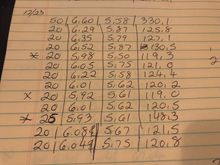 12/23
50 | 6.60 | 5.58 | 330.1
20 | 6.29 | 5.87 | 125.8
20 | 6.35 | 5.79 | 127.1
20 | 6.52 | 5.87 | 130.5
* 20 | 5.98 | 5.50 | 119.3
20 | 6.05 | 5.75 | 121.0
20 | 6.22 | 5.58 | 124.4
20 | 6.01 | 5.62 | 120.2
* 20 | 5.92 | 5.61 | 119.0
20 | 6.01 | 5.62 | 120.5
* 25 | 5.93 | 5.61 | 148.3
20 | 6.08 | 5.67 | 121.5
20 | 6.04 | 5.75 | 120.8
2